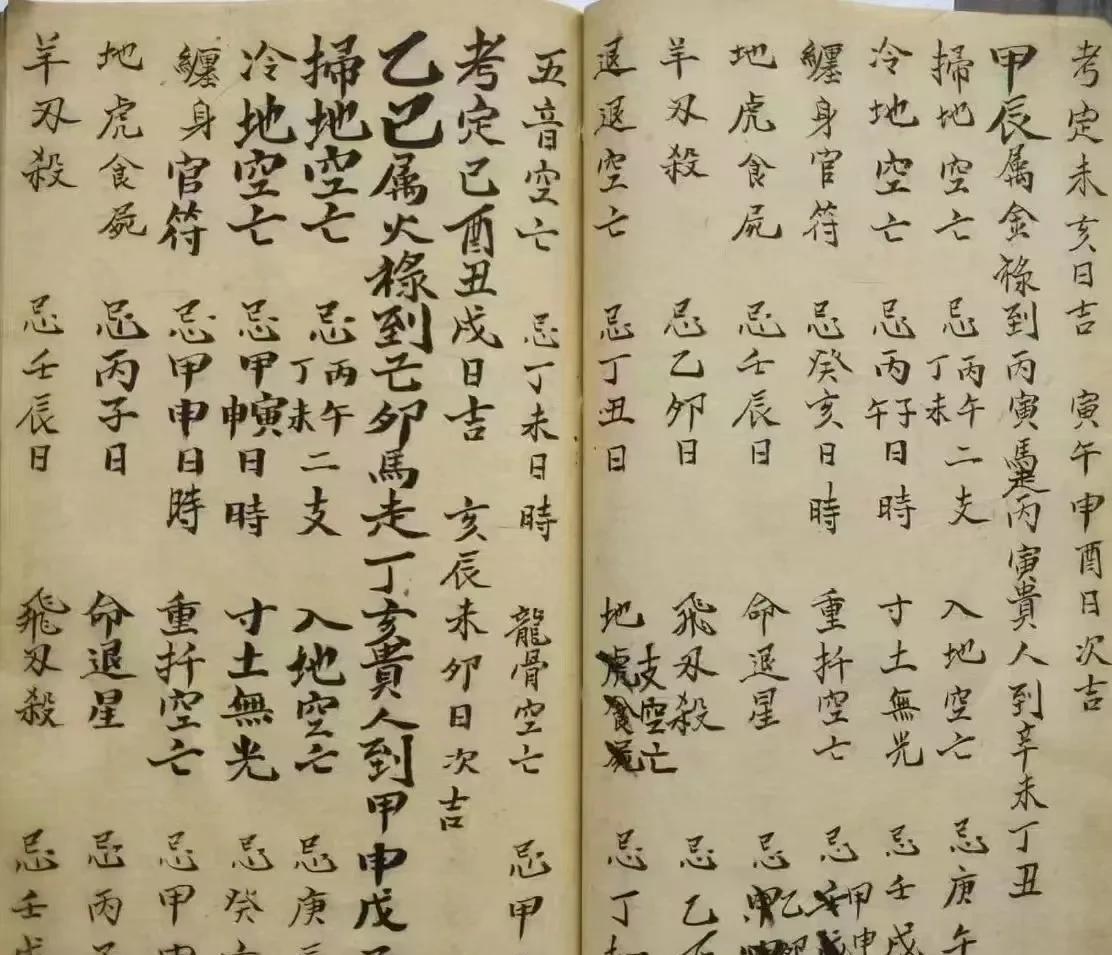 考定未亥日吉 寅午申酉日次吉
甲辰属金祿到丙寅馬走丙寅貴人到辛未丁丑
掃地空亡 忌丙午丁未二支 入地空亡 忌庚午
冷地空亡 忌丙子午日時 寸土無光 忌壬戌
纏身官符 忌癸亥日時 重拆空亡 忌甲申
地虎食屍 忌壬辰日 命退星 忌乙卯
羊刃殺 忌乙卯日 飛刃殺 忌乙
退退空亡 忌丁丑日 地支空亡 忌丁
五音空亡 忌丁未日時 龍骨空亡 忌甲
考定巳酉丑戌日吉 亥辰未卯日次吉
乙巳属火祿到卯馬走丁亥貴人到甲申戊子
掃地空亡 忌丙午丁未二支 入地空亡 忌庚辰
冷地空亡 忌甲寅日時 寸土無光 忌癸
纏身官符 忌甲申日時 重拆空亡 忌甲申
地虎食屍 忌丙子日 命退星 忌丙子
羊刃殺 忌壬辰日 飛刃殺 忌壬戌